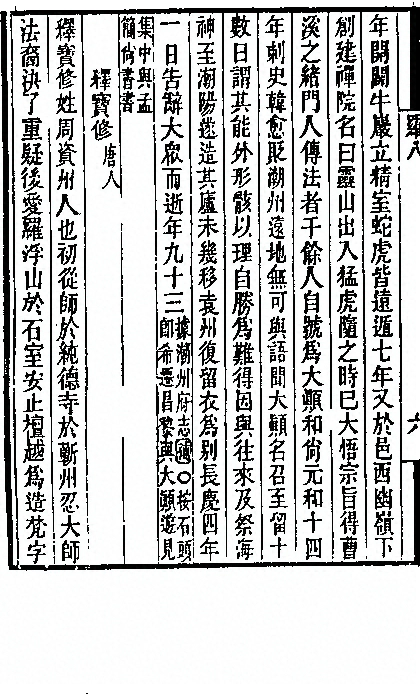 年開闢牛巖立精室蛇虎皆遠遁七年又於邑西幽嶺下
創建禪院名曰靈山出入猛虎隨之時已大悟宗旨得曹
溪之緒門人傳法者千餘人自號為大顛和尙元和十四
年刺史韓愈貶潮州遠地無可與語聞大顛名召至留十
數日謂其能外形骸以理自勝為難得因與往來及祭海
神至潮陽遂造其廬未幾移袁州復留衣為別長慶四年
一日告辭大衆而逝年九十三據潮州府志○按石頭
卽希遷昌黎與大顛遊見
集中與孟
簡尙書書
釋寶修唐人
釋寶修姓周資州人也初從師於純德寺於蘄州忍大師
法裔決了重疑後愛羅浮山於石室安止壇越為造梵字